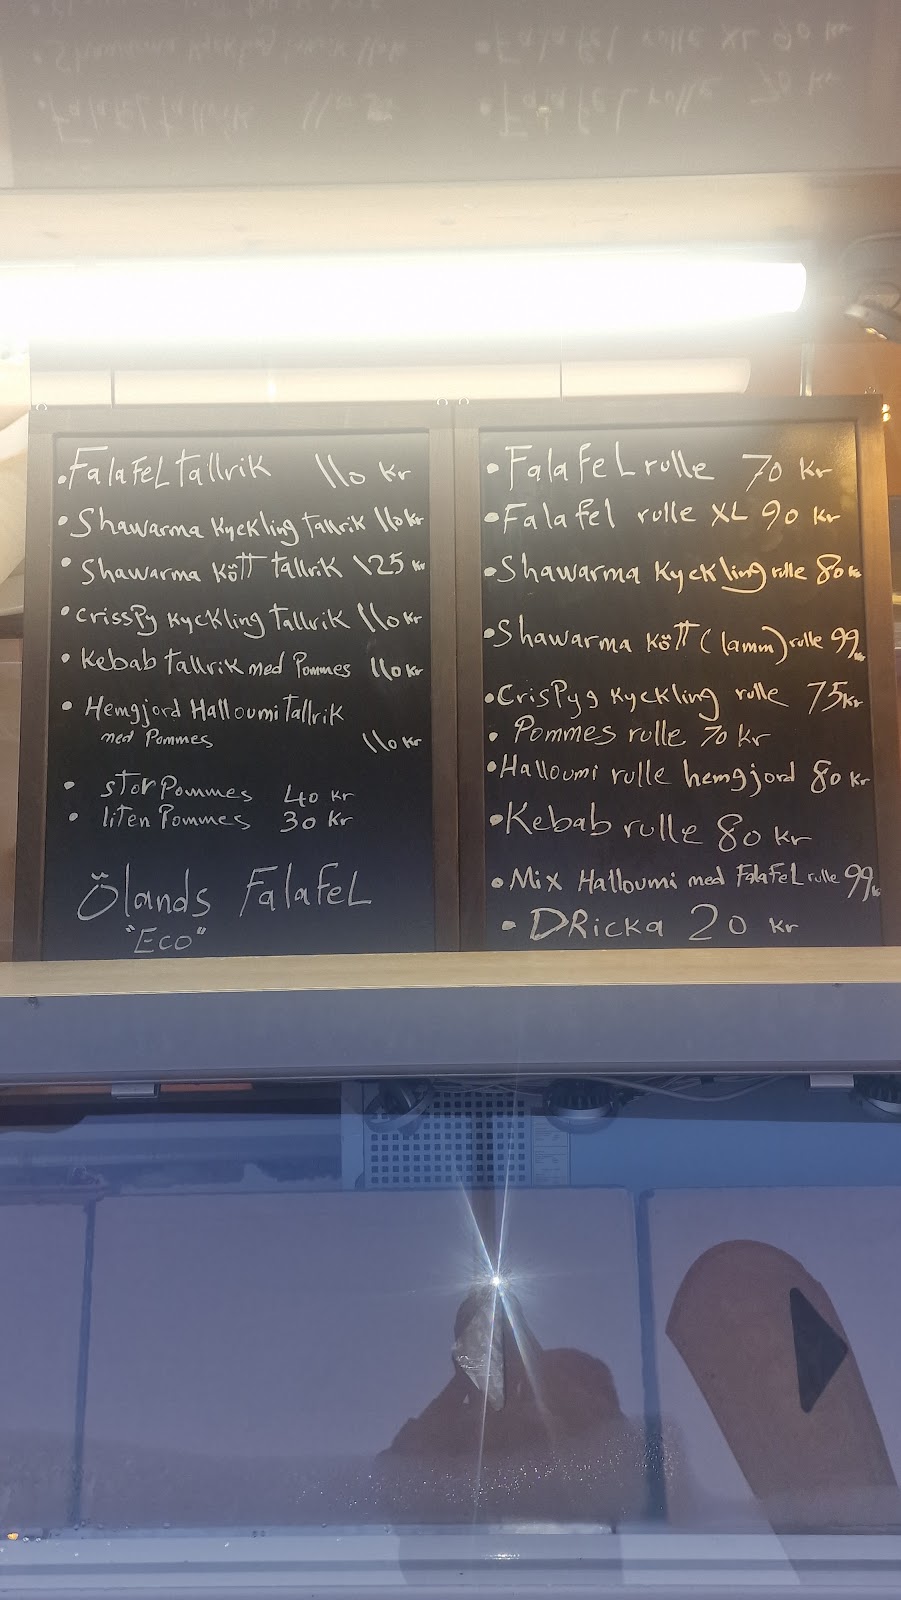 • Falafel tallrik 110 kr
• Shawarma kyckling tallrik 110 kr
• Shawarma kött tallrik 125 kr
• crisspy kyckling tallrik 110 kr
• kebab tallrik med Pommes 110 kr
• Hemgjord Halloumi tallrik
med Pommes 110 kr
• stor Pommes 40 kr
• liten Pommes 30 kr
Ölands Falafel
"Eco"
• Falafel rulle 70 kr
• Falafel rulle XL 90 kr
• Shawarma kyckling rulle 80 kr
• Shawarma kött (lamm) rulle 99 kr
• Crispyg kyckling rulle 75 kr
• Pommes rulle 70 kr
• Halloumi rulle hemgjord 80 kr
• Kebab rulle 80 kr
• Mix Halloumi med Falafel rulle 99 kr
• DRicka 20 kr